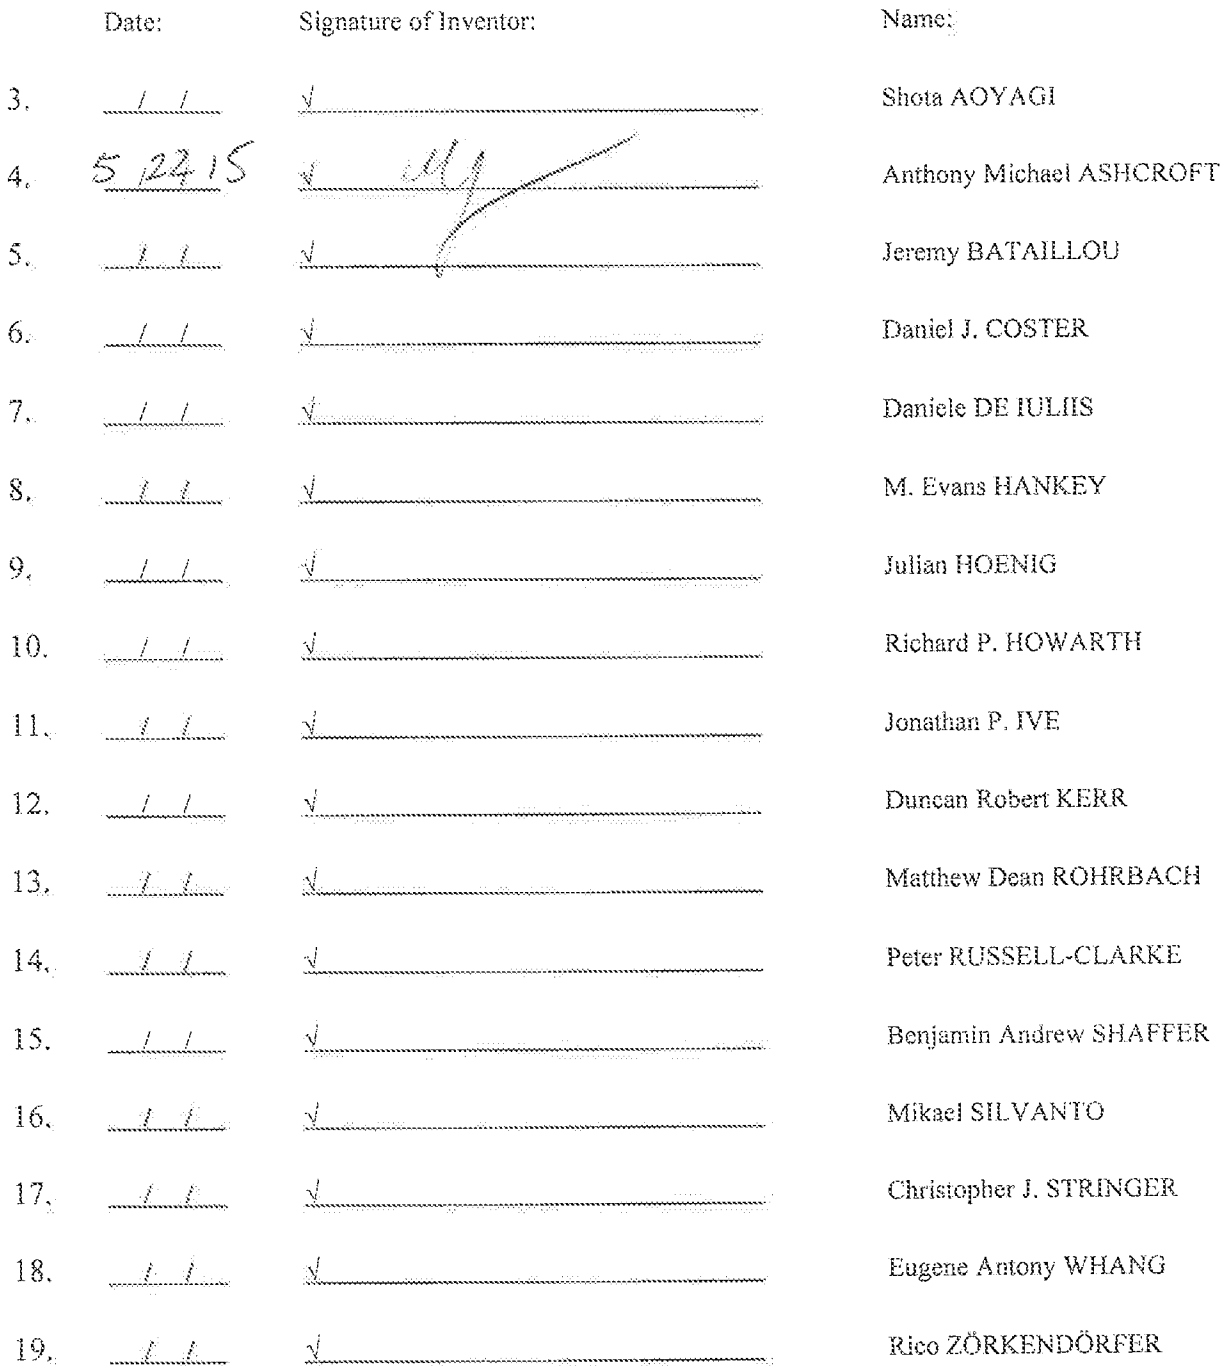 Date: Signature of Inventor: Name:
3. / / √ Shota AOYAGI
4. 5/22/15 √ Anthony Michael ASHCROFT
5. / / √ Jeremy BATAILLOU
6. / / √ Daniel J. COSTER
7. / / √ Daniele DE IULIIS
8. / / √ M. Evans HANKEY
9. / / √ Julian HOENIG
10. / / √ Richard P. HOWARTH
11. / / √ Jonathan P. IVE
12. / / √ Duncan Robert KERR
13. / / √ Matthew Dean ROHRBACH
14. / / √ Peter RUSSELL-CLARKE
15. / / √ Benjamin Andrew SHAFFER
16. / / √ Mikael SILVANTO
17. / / √ Christopher J. STRINGER
18. / / √ Eugene Antony WHANG
19. / / √ Rico ZÖRKENDÖRFER